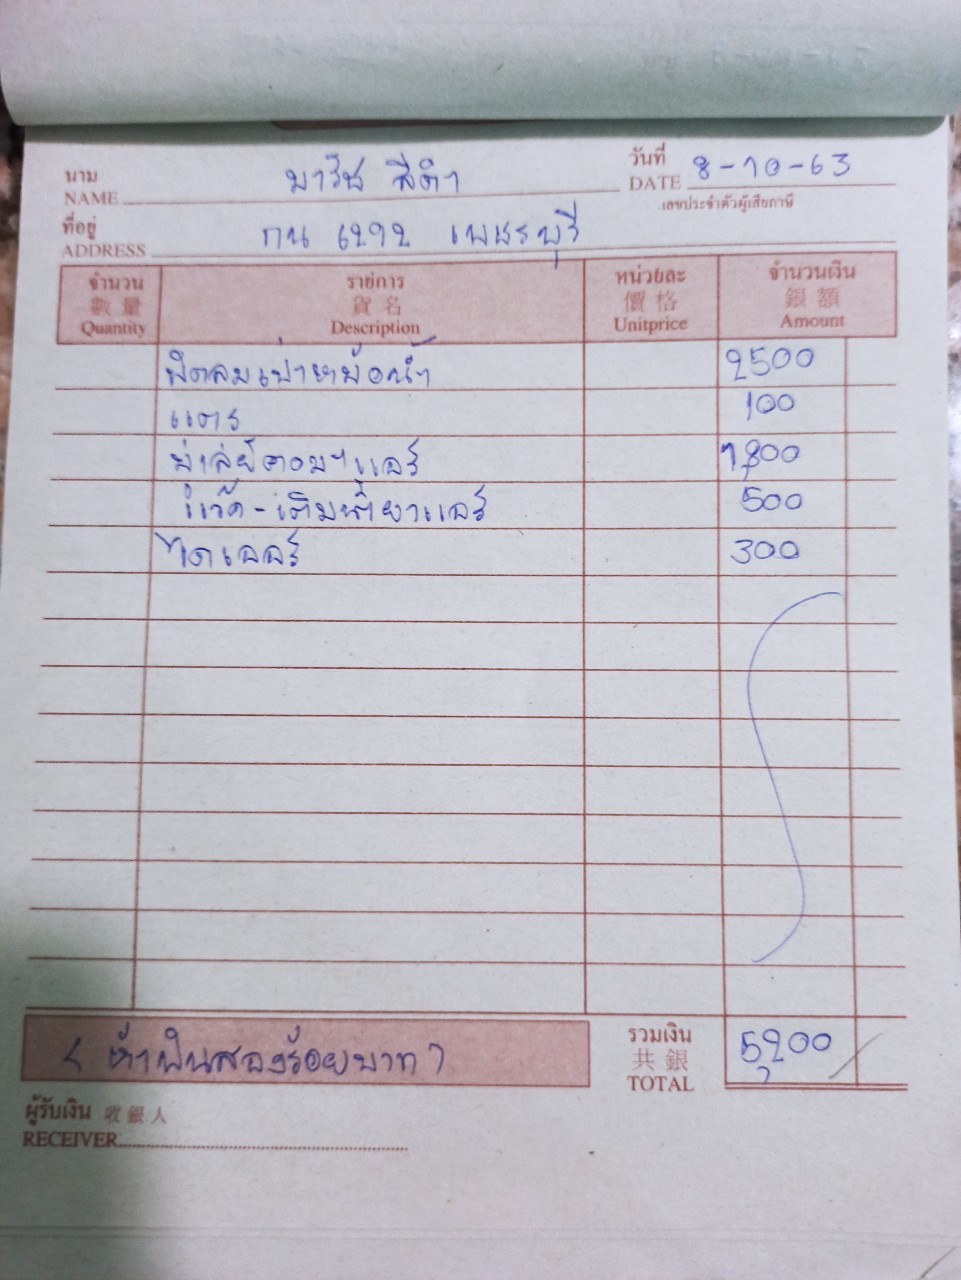 นาม มารีช สีดำ วันที่ 8-10-63
NAME DATE
ที่อยู่ กน 6292 เพชรบุรี เลขประจำตัวผู้เสียภาษี
ADDRESS
จำนวน รายการ หน่วยละ จำนวนเงิน
數量 貨名 價格 銀額
Quantity Description Unitprice Amount
พัดลมเป่าหม้อน้ำ 2500
แตร 100
มู่เล่ย์คอมฯแอร์ 1,800
แว๊ค-เติมน้ำยาแอร์ 500
ไดเออร์ 300
(ห้าพันสองร้อยบาท) รวมเงิน 5,200
共銀
TOTAL
ผู้รับเงิน 收銀人
RECEIVER